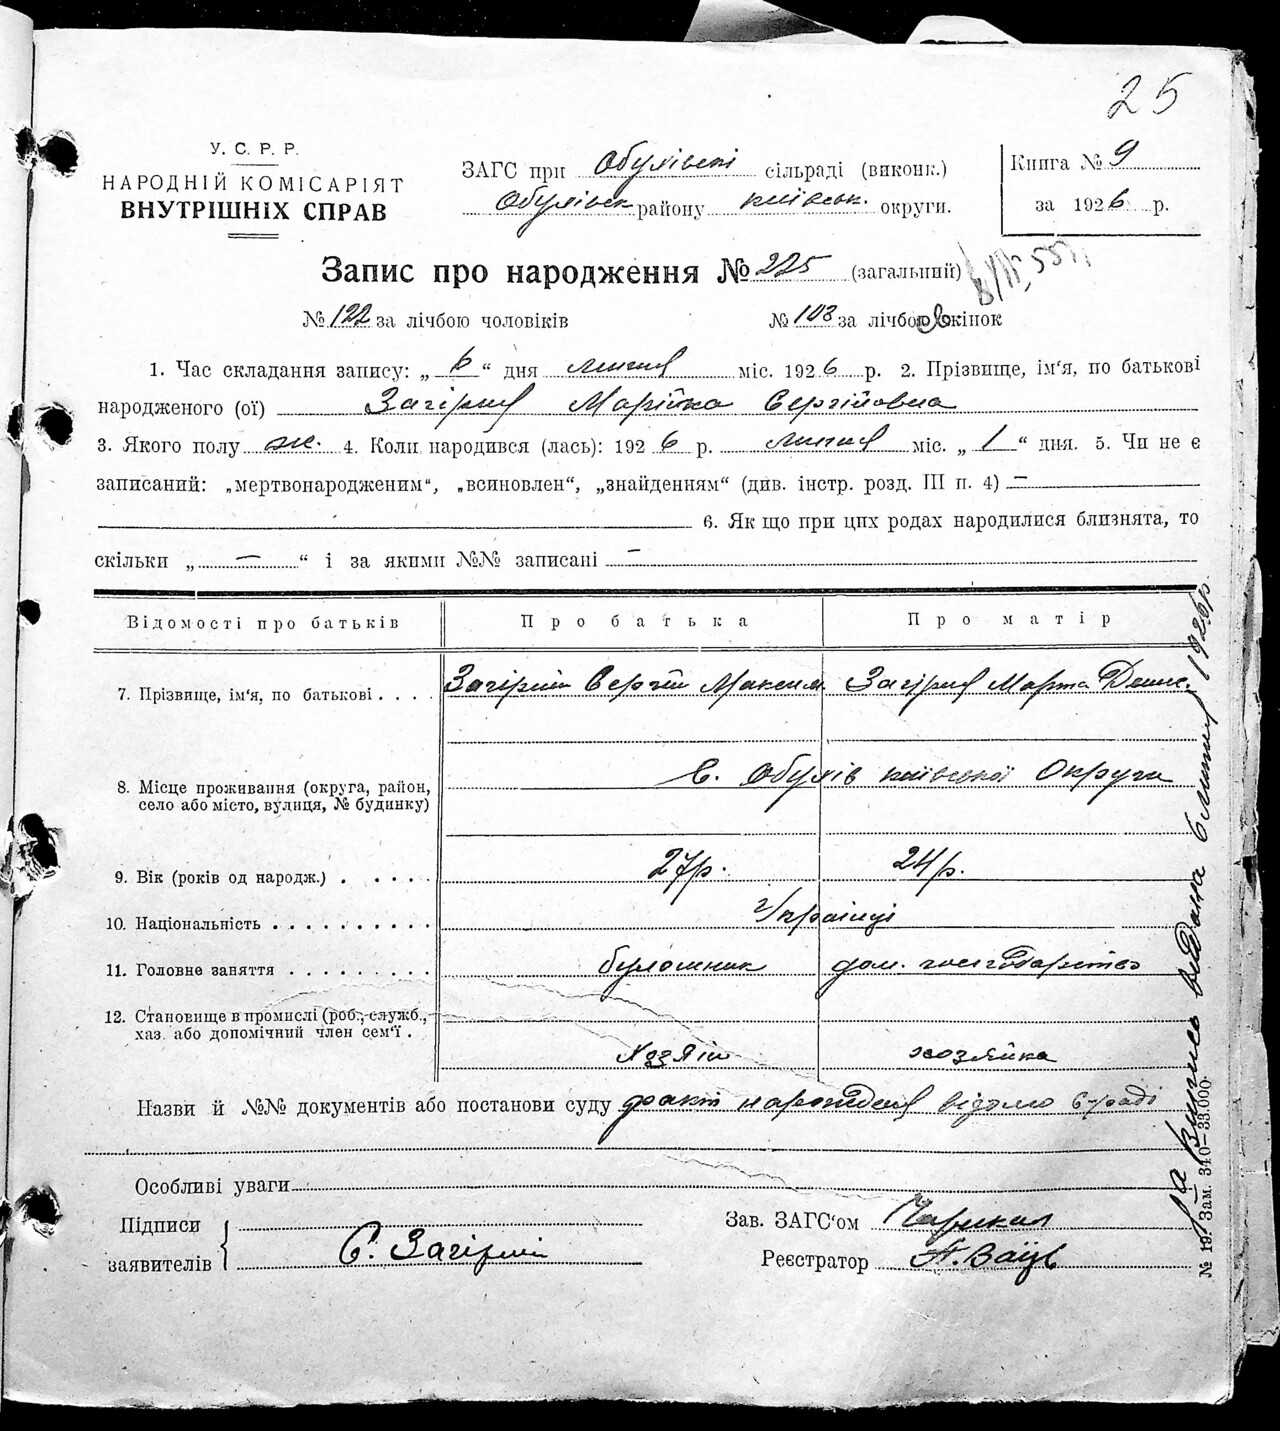 25
У. С. Р. Р.
НАРОДНІЙ КОМІСАРІЯТ
ВНУТРІШНІХ СПРАВ
ЗАГС при Обухівскі сільраді (виконк.)
Обухівськ району київськ. округи.
Книга № 9
за 1926 р.
Запис про народження № 225 (загальний)
№ 122 за лічбою чоловіків
№ 103 за лічбою жінок
1. Час складання запису: „ 6 “ дня липня міс. 1926 р. 2. Прізвище, ім‘я, по батькові
народженого (ої) Загірня Марійка Сергійовна
3. Якого полу ж. 4. Коли народився (лась): 1926 р. липня міс. „ 1 “ дня. 5. Чи не є
записаний: „мертвонародженим“, „всиновлен“, „знайденням“ (див. інстр. розд. III п. 4) —
6. Як що при цих родах народилися близнята, то
скільки „ — “ і за якими №№ записані —
Відомості про батьків Про батька Про матір
7. Прізвище, ім‘я, по батькові . . . . Загірній Сергій Максим. Загірня Марта Денис.
С. Обухів київської Округи
8. Місце проживання (округа, район,
село або місто, вулиця, № будинку)
9. Вік (років од народж.) . . . . . . 27 р. 24 р.
10. Національність . . . . . . . . . . Українці
11. Головне заняття . . . . . . . . . булошник дом. господарство
12. Становище в промислі (роб., служб.,
хаз. або допомічний член сем‘ї .
хозяїн хозяйка
Назви й №№ документів або постанови суду факт народження відомо с-раді
Особливі уваги
Підписи
заявителів
С. Загірній
Зав. ЗАГС‘ом
Реєстратор
Випись видана 6 липня 1926 р.
№ 19. Зам. 340—33.000.